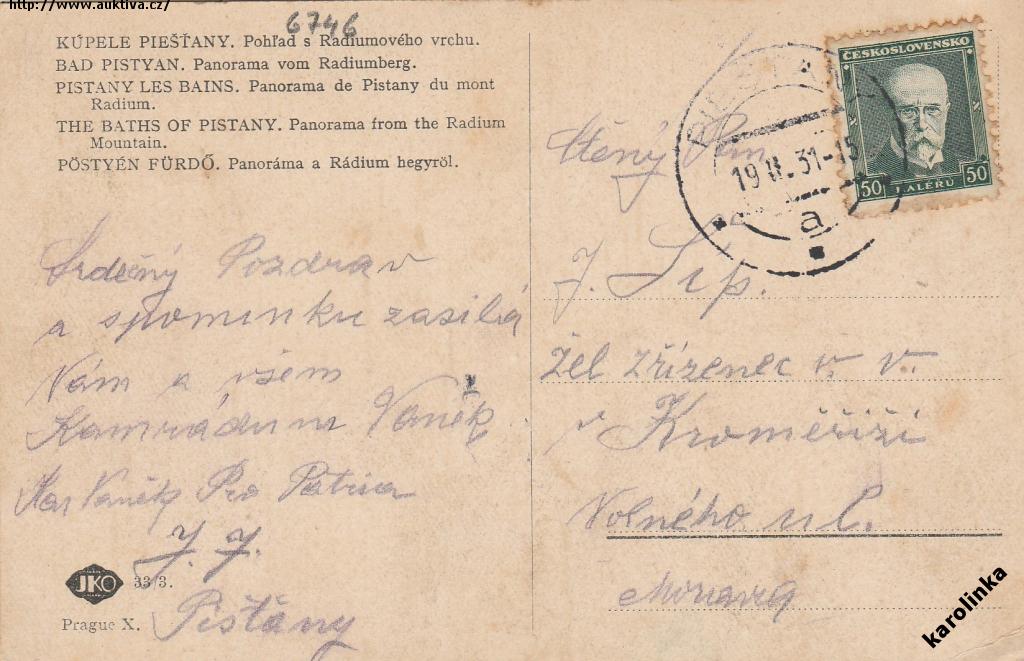 http://www.auktiva.cz/
6746
KÚPELE PIEŠŤANY. Pohľad s Radiumového vrchu.
BAD PISTYAN. Panorama vom Radiumberg.
PISTANY LES BAINS. Panorama de Pistany du mont
Radium.
THE BATHS OF PISTANY. Panorama from the Radium
Mountain.
PÖSTYÉN FÜRDŐ. Panoráma a Rádium hegyröl.
Srdečný Pozdrav
a spominku zasílá
Vám a všem
Kamrádum Vaněk
Vaněk Pro Patria
Pišťány
JKO 33/3.
Prague X.
ČESKOSLOVENSKO
50 HALÉRU 50
PIEŠŤANY
19 II. 31-15
a
Ctěný Pan
J. Síp.
žel zřízenec v. v.
v Kroměříži
Volného ul.
Morava
karolinka